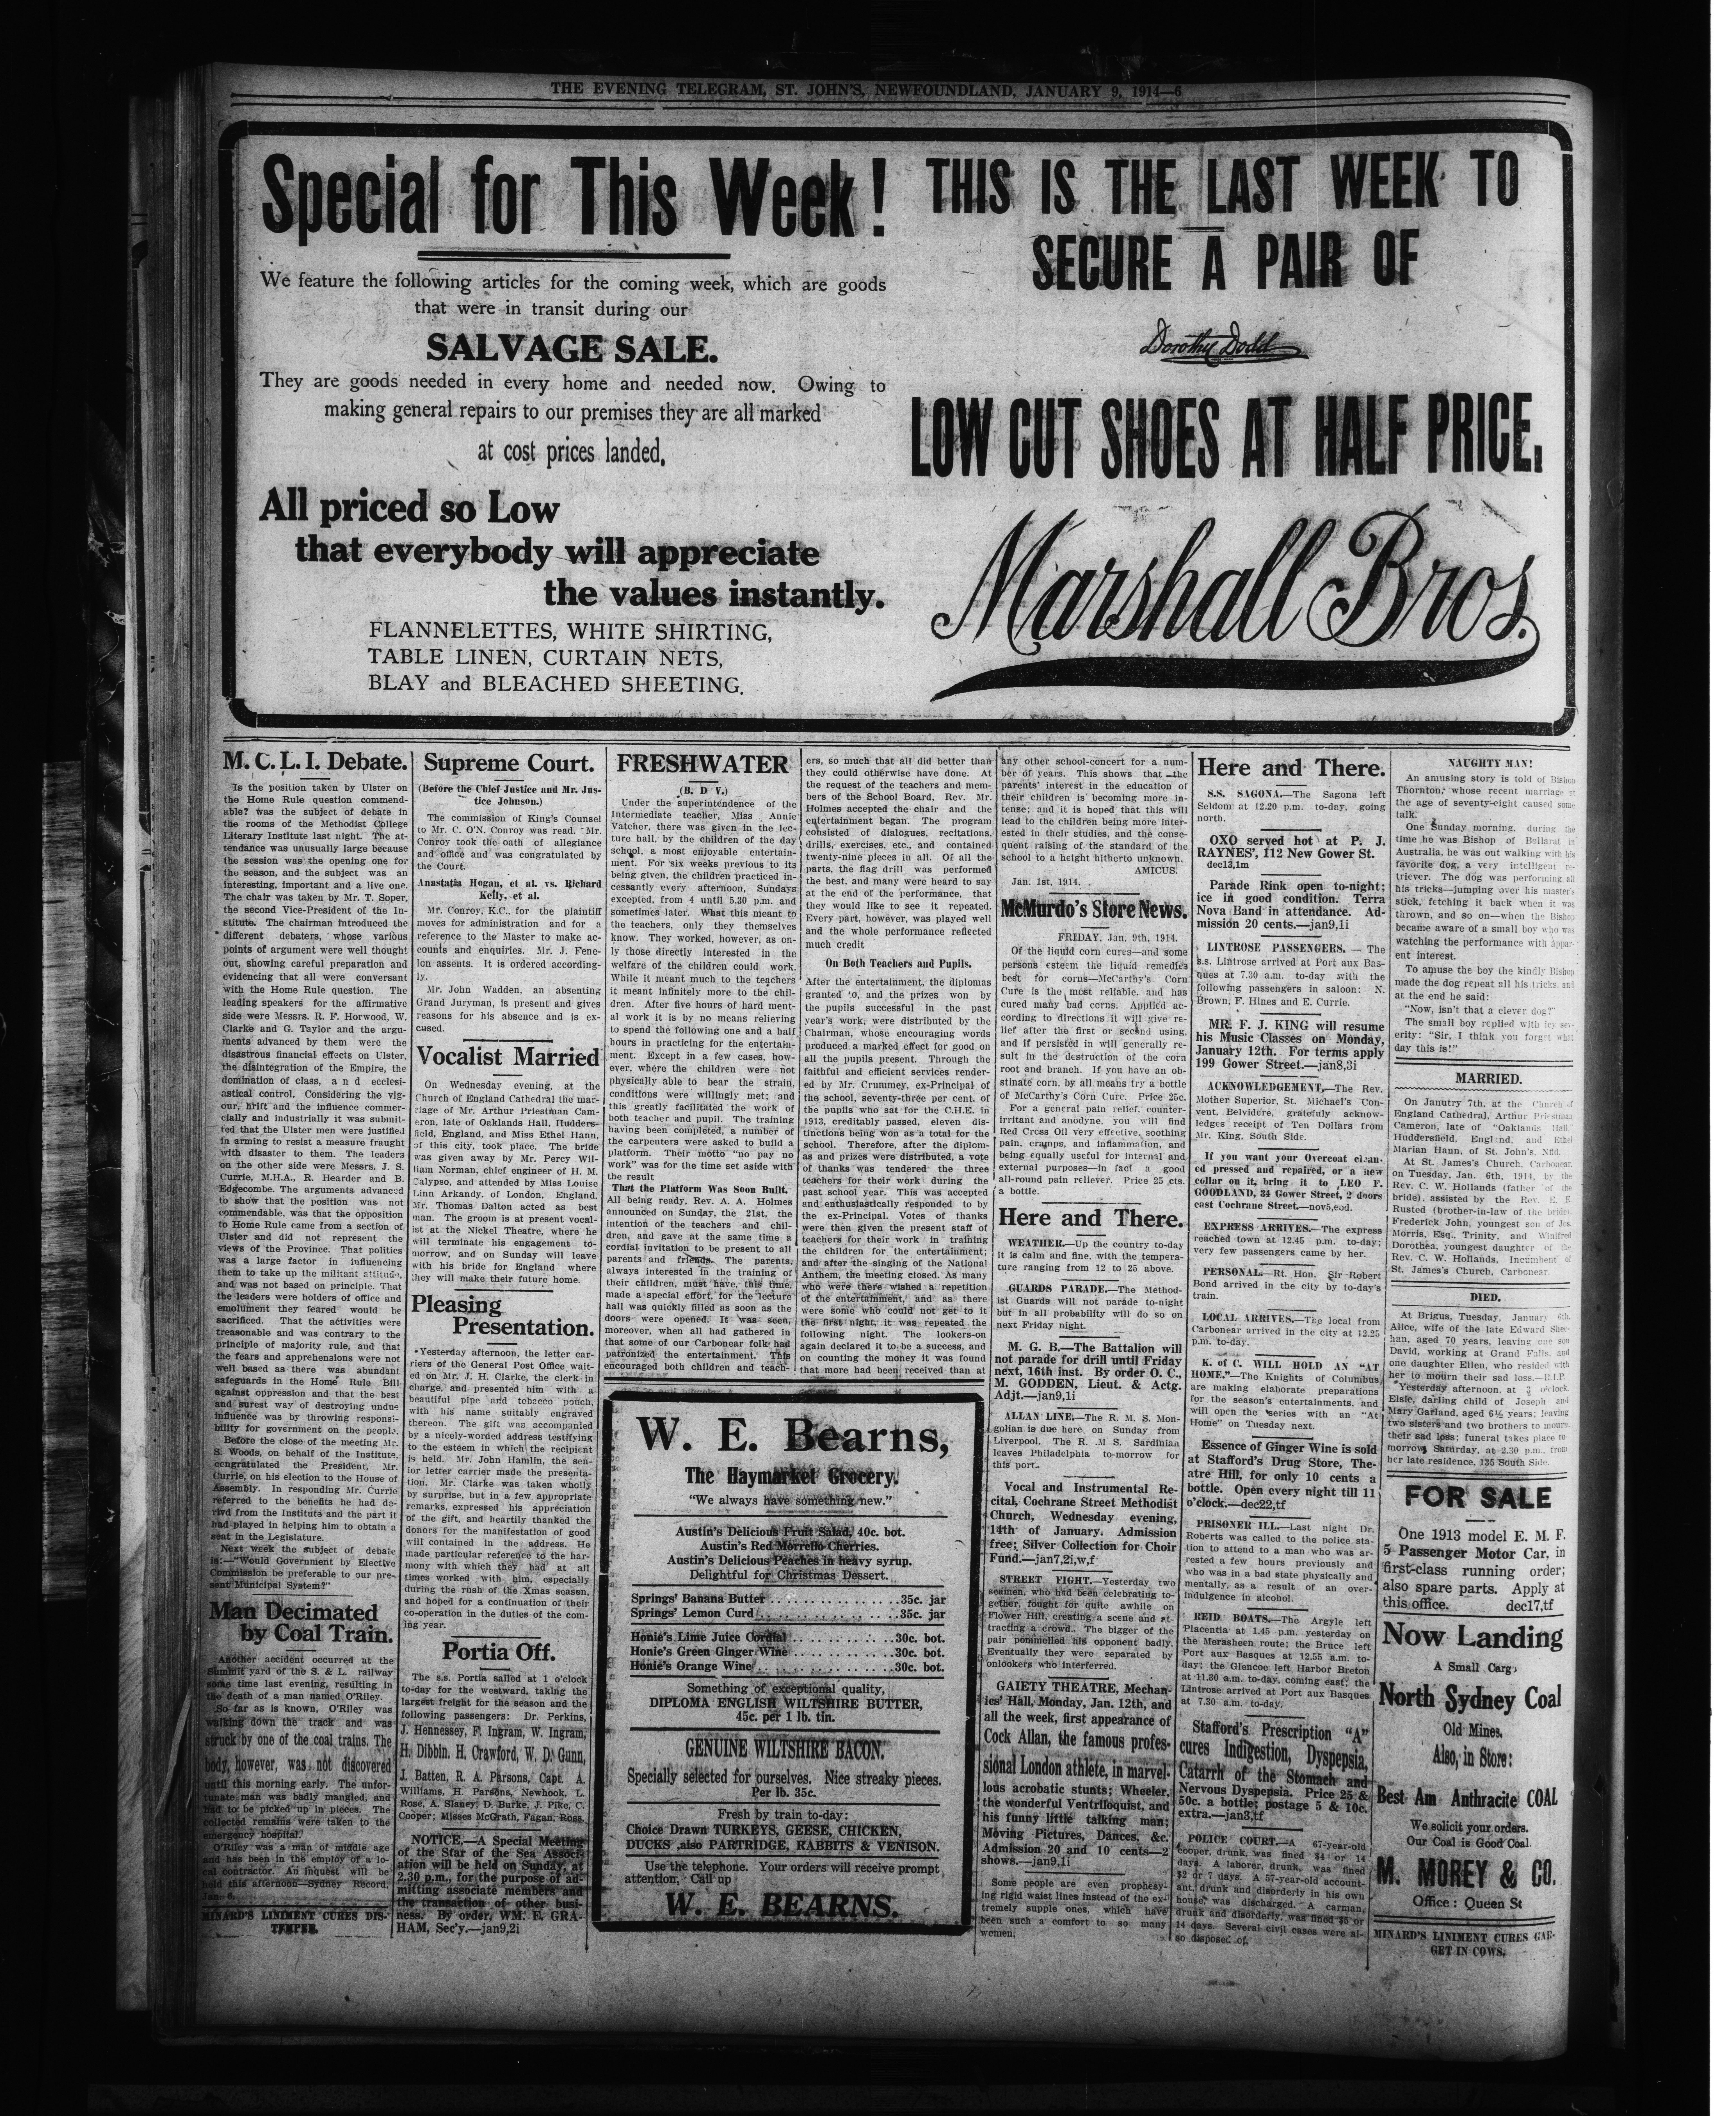 THE EVENING TELEGRAM, ST. JOHN'S, NEWFOUNDLAND, JANUARY 9, 1914—6
Special for This Week!
We feature the following articles for the coming week, which are goods
that were in transit during our
SALVAGE SALE.
They are goods needed in every home and needed now. Owing to
making general repairs to our premises they are all marked
at cost prices landed.
All priced so Low
that everybody will appreciate
the values instantly.
FLANNELETTES, WHITE SHIRTING,
TABLE LINEN, CURTAIN NETS,
BLAY and BLEACHED SHEETING.
THIS IS THE LAST WEEK TO
SECURE A PAIR OF
Dorothy Dodd
LOW CUT SHOES AT HALF PRICE.
Marshall Bros.
M. C. L. I. Debate.
Is the position taken by Ulster on
the Home Rule question commend-
able? was the subject of debate in
the rooms of the Methodist College
Literary Institute last night. The at-
tendance was unusually large because
the session was the opening one for
the season, and the subject was an
interesting, important and a live one.
The chair was taken by Mr. T. Soper,
the second Vice-President of the In-
stitute. The chairman introduced the
different debaters, whose various
points of argument were well thought
out, showing careful preparation and
evidencing that all were conversant
with the Home Rule question. The
leading speakers for the affirmative
side were Messrs. R. F. Horwood, W.
Clarke and G. Taylor and the argu-
ments advanced by them were the
disastrous financial effects on Ulster,
the disintegration of the Empire, the
domination of class, and ecclesi-
astical control. Considering the vig-
our, thrift and the influence commer-
cially and industrially it was submit-
ted that the Ulster men were justified
in arming to resist a measure fraught
with disaster to them. The leaders
on the other side were Messrs. J. S.
Currie, M.H.A., R. Hearder and B.
Edgecombe. The arguments advanced
to show that the position was not
commendable, was that the opposition
to Home Rule came from a section of
Ulster and did not represent the
views of the Province. That politics
was a large factor in influencing
them to take up the militant attitude,
and was not based on principle. That
the leaders were holders of office and
emolument they feared would be
sacrificed. That the activities were
treasonable and was contrary to the
principle of majority rule, and that
the fears and apprehensions were not
well based as there was abundant
safeguards in the Home Rule Bill
against oppression and that the best
and surest way of destroying undue
influence was by throwing responsi-
bility for government on the people.
Before the close of the meeting Mr.
S. Woods, on behalf of the Institute,
congratulated the President, Mr.
Currie, on his election to the House of
Assembly. In responding Mr. Currie
referred to the benefits he had de-
rivd from the Institute and the part it
had played in helping him to obtain a
seat in the Legislature.
Next week the subject of debate
is:—"Would Government by Elective
Commission be preferable to our pre-
sent Municipal System?"
Man Decimated
by Coal Train.
Another accident occurred at the
Summit yard of the S. & L. railway
some time last evening, resulting in
the death of a man named O'Riley.
So far as is known, O'Riley was
walking down the track and was
struck by one of the coal trains. The
body, however, was not discovered
until this morning early. The unfor-
tunate man was badly mangled, and
had to be picked up in pieces. The
collected remains were taken to the
emergency hospital.
O'Riley was a man of middle age
and has been in the employ of a lo-
cal contractor. An inquest will be
held this afternoon—Sydney Record,
Jan. 6.
MINARD'S LINIMENT CURES DIS-
TEMPER.
Supreme Court.
(Before the Chief Justice and Mr. Jus-
tice Johnson.)
The commission of King's Counsel
to Mr. C. O'N. Conroy was read. Mr.
Conroy took the oath of allegiance
and office and was congratulated by
the Court.
Anastatia Hogan, et al. vs. Richard
Kelly, et al.
Mr. Conroy, K.C., for the plaintiff
moves for administration and for a
reference to the Master to make ac-
counts and enquiries. Mr. J. Fene-
lon assents. It is ordered according-
ly.
Mr. John Wadden, an absenting
Grand Juryman, is present and gives
reasons for his absence and is ex-
cused.
Vocalist Married
On Wednesday evening, at the
Church of England Cathedral the mar-
riage of Mr. Arthur Priestman Cam-
eron, late of Oaklands Hall, Hudders-
field, England, and Miss Ethel Hann,
of this city, took place. The bride
was given away by Mr. Percy Wil-
liam Norman, chief engineer of H. M.
Calypso, and attended by Miss Louise
Linn Arkandy, of London, England.
Mr. Thomas Dalton acted as best
man. The groom is at present vocal-
ist at the Nickel Theatre, where he
will terminate his engagement to-
morrow, and on Sunday will leave
with his bride for England where
they will make their future home.
Pleasing
Presentation.
Yesterday afternoon, the letter car-
riers of the General Post Office wait-
ed on Mr. J. H. Clarke, the clerk in
charge, and presented him with a
beautiful pipe and tobacco pouch,
with his name suitably engraved
thereon. The gift was accompanied
by a nicely-worded address testifying
to the esteem in which the recipient
is held. Mr. John Hamlin, the sen-
ior letter carrier made the presenta-
tion. Mr. Clarke was taken wholly
by surprise, but in a few appropriate
remarks, expressed his appreciation
of the gift, and heartily thanked the
donors for the manifestation of good
will contained in the address. He
made particular reference to the har-
mony with which they had at all
times worked with him, especially
during the rush of the Xmas season,
and hoped for a continuation of their
co-operation in the duties of the com-
ing year.
Portia Off.
The s.s. Portia sailed at 1 o'clock
to-day for the westward, taking the
largest freight for the season and the
following passengers: Dr. Perkins,
J. Hennessey, F. Ingram, W. Ingram,
H. Dibbin, H. Crawford, W. D. Gunn,
J. Batten, R. A. Parsons, Capt. A.
Williams, H. Parsons, Newhook, L.
Rose, A. Slaney, D. Burke, J. Pike, C.
Cooper; Misses McGrath, Fagan, Ross.
NOTICE.—A Special Meeting
of the Star of the Sea Associ-
ation will be held on Sunday, at
2.30 p.m., for the purpose of ad-
mitting associate members and
the transaction of other busi-
ness. By order, WM. F. GRA-
HAM, Sec'y.—jan9,2i
FRESHWATER
(B. D V.)
Under the superintendence of the
Intermediate teacher, Miss Annie
Vatcher, there was given in the lec-
ture hall, by the children of the day
school, a most enjoyable entertain-
ment. For six weeks previous to its
being given, the children practiced in-
cessantly every afternoon, Sundays
excepted, from 4 until 5.30 p.m. and
sometimes later. What this meant to
the teachers, only they themselves
know. They worked, however, as on-
ly those directly interested in the
welfare of the children could work.
While it meant much to the teachers
it meant infinitely more to the chil-
dren. After five hours of hard ment-
al work it is by no means relieving
to spend the following one and a half
hours in practicing for the entertain-
ment. Except in a few cases, how-
ever, where the children were not
physically able to bear the strain,
conditions were willingly met; and
this greatly facilitated the work of
both teacher and pupil. The training
having been completed, a number of
the carpenters were asked to build a
platform. Their motto "no pay no
work" was for the time set aside with
the result
That the Platform Was Soon Built.
All being ready, Rev. A. A. Holmes
announced on Sunday, the 21st, the
intention of the teachers and chil-
dren, and gave at the same time a
cordial invitation to be present to all
parents and friends. The parents,
always interested in the training of
their children, must have, this time,
made a special effort, for the lecture
hall was quickly filled as soon as the
doors were opened. It was seen,
moreover, when all had gathered in
that some of our Carbonear folk had
patronized the entertainment. This
encouraged both children and teach-
ers, so much that all did better than
they could otherwise have done. At
the request of the teachers and mem-
bers of the School Board, Rev. Mr.
Holmes accepted the chair and the
entertainment began. The program
consisted of dialogues, recitations,
drills, exercises, etc., and contained
twenty-nine pieces in all. Of all the
parts, the flag drill was performed
the best, and many were heard to say
at the end of the performance, that
they would like to see it repeated.
Every part, however, was played well
and the whole performance reflected
much credit
On Both Teachers and Pupils.
After the entertainment, the diplomas
granted to, and the prizes won by
the pupils successful in the past
year's work, were distributed by the
Chairman, whose encouraging words
produced a marked effect for good on
all the pupils present. Through the
faithful and efficient services render-
ed by Mr. Crummey, ex-Principal of
the school, seventy-three per cent. of
the pupils who sat for the C.H.E. in
1913, creditably passed, eleven dis-
tinctions being won as a total for the
school. Therefore, after the diplom-
as and prizes were distributed, a vote
of thanks was tendered the three
teachers for their work during the
past school year. This was accepted
and enthusiastically responded to by
the ex-Principal. Votes of thanks
were then given the present staff of
teachers for their work in training
the children for the entertainment;
and after the singing of the National
Anthem, the meeting closed. As many
who were there wished a repetition
of the entertainment, and as there
were some who could not get to it
the first night, it was repeated the
following night. The lookers-on
again declared it to be a success, and
on counting the money it was found
that more had been received than at
any other school-concert for a num-
ber of years. This shows that the
parents' interest in the education of
their children is becoming more in-
tense; and it is hoped that this will
lead to the children being more inter-
ested in their studies, and the conse-
quent raising of the standard of the
school to a height hitherto unknown.
AMICUS.
Jan. 1st, 1914.
W. E. Bearns,
The Haymarket Grocery.
"We always have something new."
Austin's Delicious Fruit Salad, 40c. bot.
Austin's Red Morrello Cherries.
Austin's Delicious Peaches in heavy syrup.
Delightful for Christmas Dessert.
Springs' Banana Butter . . . 35c. jar
Springs' Lemon Curd . . . 35c. jar
Honie's Lime Juice Cordial . . . 30c. bot.
Honie's Green Ginger Wine . . . 30c. bot.
Honie's Orange Wine . . . 30c. bot.
Something of exceptional quality,
DIPLOMA ENGLISH WILTSHIRE BUTTER,
45c. per 1 lb. tin.
GENUINE WILTSHIRE BACON.
Specially selected for ourselves. Nice streaky pieces.
Per lb. 35c.
Fresh by train to-day:
Choice Drawn TURKEYS, GEESE, CHICKEN,
DUCKS also PARTRIDGE, RABBITS & VENISON.
Use the telephone. Your orders will receive prompt
attention. Call up
W. E. BEARNS.
McMurdo's Store News.
FRIDAY, Jan. 9th, 1914.
Of the liquid corn cures—and some
persons esteem the liquid remedies
best for corns—McCarthy's Corn
Cure is the most reliable, and has
cured many bad corns. Applied ac-
cording to directions it will give re-
lief after the first or second using,
and if persisted in will generally re-
sult in the destruction of the corn
root and branch. If you have an ob-
stinate corn, by all means try a bottle
of McCarthy's Corn Cure. Price 25c.
For a general pain relief, counter-
irritant and anodyne, you will find
Red Cross Oil very effective, soothing
pain, cramps, and inflammation, and
being equally useful for internal and
external purposes—in fact a good
all-round pain reliever. Price 25 cts.
a bottle.
Here and There.
WEATHER.—Up the country to-day
it is calm and fine, with the tempera-
ture ranging from 12 to 25 above.
GUARDS PARADE.—The Method-
ist Guards will not parade to-night
but in all probability will do so on
next Friday night.
M. G. B.—The Battalion will
not parade for drill until Friday
next, 16th inst. By order O. C.,
M. GODDEN, Lieut. & Actg.
Adjt.—jan9,1i
ALLAN LINE.—The R. M. S. Mon-
golian is due here on Sunday from
Liverpool. The R. M S. Sardinian
leaves Philadelphia to-morrow for
this port.
Vocal and Instrumental Re-
cital, Cochrane Street Methodist
Church, Wednesday evening,
14th of January. Admission
free; Silver Collection for Choir
Fund.—jan7,2i,w,f
STREET FIGHT.—Yesterday two
seamen, who had been celebrating to-
gether, fought for quite awhile on
Flower Hill, creating a scene and at-
tracting a crowd. The bigger of the
pair pommelled his opponent badly.
Eventually they were separated by
onlookers who interferred.
GAIETY THEATRE, Mechan-
ics' Hall, Monday, Jan. 12th, and
all the week, first appearance of
Cock Allan, the famous profes-
sional London athlete, in marvel-
lous acrobatic stunts; Wheeler,
the wonderful Ventriloquist, and
his funny little talking man;
Moving Pictures, Dances, &c.
Admission 20 and 10 cents—2
shows.—jan9,1i
Some people are even prophesy-
ing rigid waist lines instead of the ex-
tremely supple ones, which have
been such a comfort to so many
women.
Here and There.
S.S. SAGONA.—The Sagona left
Seldom at 12.20 p.m. to-day, going
north.
OXO served hot at P. J.
RAYNES', 112 New Gower St.
dec13,1m
Parade Rink open to-night;
ice in good condition. Terra
Nova Band in attendance. Ad-
mission 20 cents.—jan9,1i
LINTROSE PASSENGERS. — The
s.s. Lintrose arrived at Port aux Bas-
ques at 7.30 a.m. to-day with the
following passengers in saloon: N.
Brown, F. Hines and E. Currie.
MR. F. J. KING will resume
his Music Classes on Monday,
January 12th. For terms apply
199 Gower Street.—jan8,3i
ACKNOWLEDGEMENT.—The Rev.
Mother Superior, St. Michael's Con-
vent, Belvidere, gratefuly acknow-
ledges receipt of Ten Dollars from
Mr. King, South Side.
If you want your Overcoat clean-
ed pressed and repaired, or a new
collar on it, bring it to LEO F.
GOODLAND, 34 Gower Street, 2 doors
east Cochrane Street.—nov5,eod.
EXPRESS ARRIVES.—The express
reached town at 12.45 p.m. to-day;
very few passengers came by her.
PERSONAL.—Rt. Hon. Sir Robert
Bond arrived in the city by to-day's
train.
LOCAL ARRIVES.—The local from
Carbonear arrived in the city at 12.25
p.m. to-day.
K. of C. WILL HOLD AN "AT
HOME."—The Knights of Columbus
are making elaborate preparations
for the season's entertainments, and
will open the series with an "At
Home" on Tuesday next.
Essence of Ginger Wine is sold
at Stafford's Drug Store, The-
atre Hill, for only 10 cents a
bottle. Open every night till 11
o'clock.—dec22,tf
PRISONER ILL.—Last night Dr.
Roberts was called to the police sta-
tion to attend to a man who was ar-
rested a few hours previously and
who was in a bad state physically and
mentally, as a result of an over-
indulgence in alcohol.
REID BOATS.—The Argyle left
Placentia at 1.45 p.m. yesterday on
the Merasheen route; the Bruce left
Port aux Basques at 12.55 a.m. to-
day; the Glencoe left Harbor Breton
at 11.30 a.m. to-day, coming east; the
Lintrose arrived at Port aux Basques
at 7.30 a.m. to-day.
Stafford's Prescription "A"
cures Indigestion, Dyspepsia,
Catarrh of the Stomach and
Nervous Dyspepsia. Price 25 &
50c. a bottle; postage 5 & 10c.
extra.—jan3,tf
POLICE COURT.—A 67-year-old
cooper, drunk, was fined $4 or 14
days. A laborer, drunk, was fined
$2 or 7 days. A 57-year-old account-
ant, drunk and disorderly in his own
house, was discharged. A carman,
drunk and disorderly, was fined $5 or
14 days. Several civil cases were al-
so disposed of.
NAUGHTY MAN!
An amusing story is told of Bishop
Thornton, whose recent marriage at
the age of seventy-eight caused some
talk.
One Sunday morning, during the
time he was Bishop of Ballarat in
Australia, he was out walking with his
favorite dog, a very intelligent re-
triever. The dog was performing all
his tricks—jumping over his master's
stick, fetching it back when it was
thrown, and so on—when the Bishop
became aware of a small boy who was
watching the performance with appar-
ent interest.
To amuse the boy the kindly Bishop
made the dog repeat all his tricks, and
at the end he said:
"Now, isn't that a clever dog?"
The small boy replied with icy sev-
erity: "Sir, I think you forget what
day this is!"
MARRIED.
On Janutry 7th, at the Church of
England Cathedral, Arthur Priestman
Cameron, late of "Oaklands Hall,"
Huddersfield, England, and Ethel
Marian Hann, of St. John's, Nfld.
At St. James's Church, Carbonear,
on Tuesday, Jan. 6th, 1914, by the
Rev. C. W. Hollands (father of the
bride), assisted by the Rev. E. E.
Rusted (brother-in-law of the bride),
Frederick John, youngest son of Jas.
Morris, Esq., Trinity, and Winifred
Dorothea, youngest daughter of the
Rev. C. W. Hollands, Incumbent of
St. James's Church, Carbonear.
DIED.
At Brigus, Tuesday, January 6th,
Alice, wife of the late Edward Shee-
han, aged 70 years, leaving one son
David, working at Grand Falls, and
one daughter Ellen, who resided with
her to mourn their sad loss.—R.I.P.
Yesterday afternoon, at 3 o'clock,
Elsie, darling child of Joseph and
Mary Garland, aged 6½ years; leaving
two sisters and two brothers to mourn
their sad loss; funeral takes place to-
morrow, Saturday, at 2.30 p.m., from
her late residence, 135 South Side.
FOR SALE
One 1913 model E. M. F.
5 Passenger Motor Car, in
first-class running order;
also spare parts. Apply at
this office. dec17,tf
Now Landing
A Small Cargo
North Sydney Coal
Old Mines.
Also, in Store:
Best Am Anthracite COAL
We solicit your orders.
Our Coal is Good Coal.
M. MOREY & CO.
Office: Queen St
MINARD'S LINIMENT CURES GAR-
GET IN COWS.